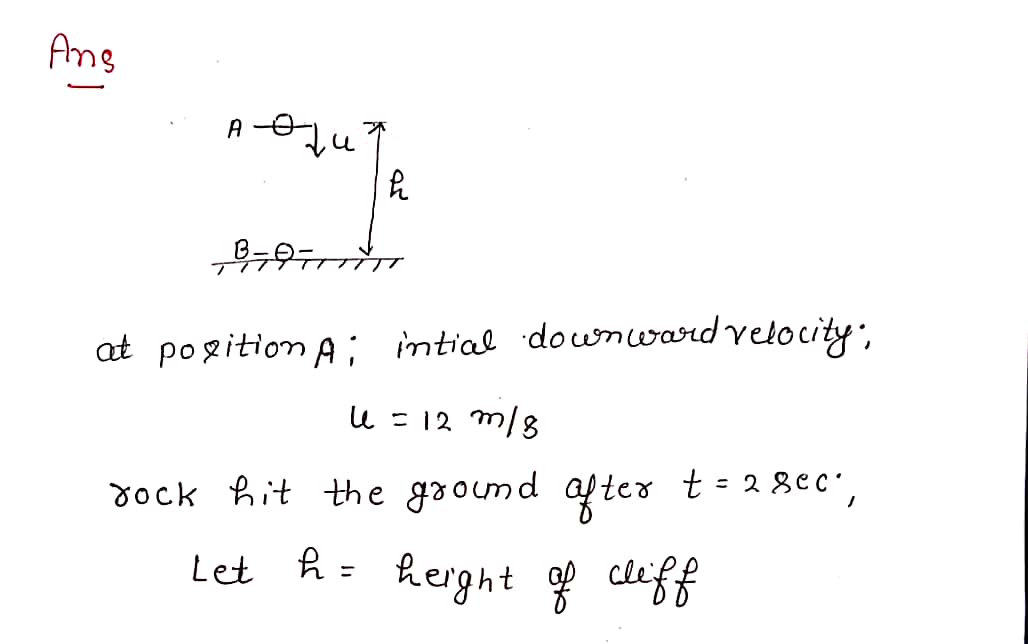 Ans
A u
h
B
at position A; intial downward velocity;
u = 12 m/s
rock hit the ground after t = 2 sec;
Let h = height of cliff